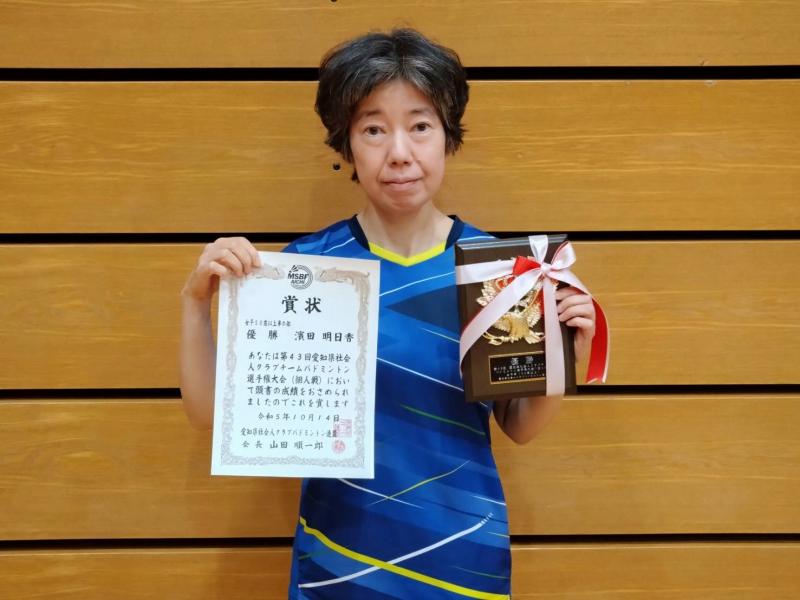 MSBF
AICHI
賞状
女子50歳以上単の部
優勝 濱田 明日香
あなたは第43回愛知県社会
人クラブチームバドミントン
選手権大会(個人戦)におい
て頭書の成績をおさめられ
ましたのでこれを賞します
令和5年10月14日
愛知県社会人クラブバドミントン連盟
会長 山田 順一郎
優勝